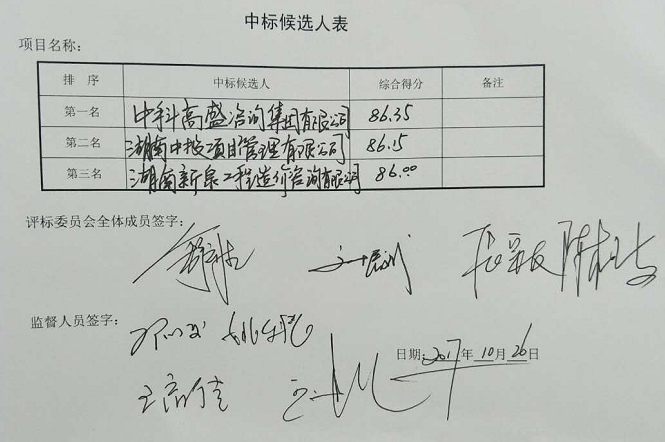 中标候选人表
项目名称：
排 序 中标候选人 综合得分 备注
第一名 中科高盛咨询集团有限公司 86.35
第二名 湖南中投项目管理有限公司 86.15
第三名 湖南新泉工程造价咨询有限公司 86.00
评标委员会全体成员签字：
监督人员签字：
日期：2017年10月26日